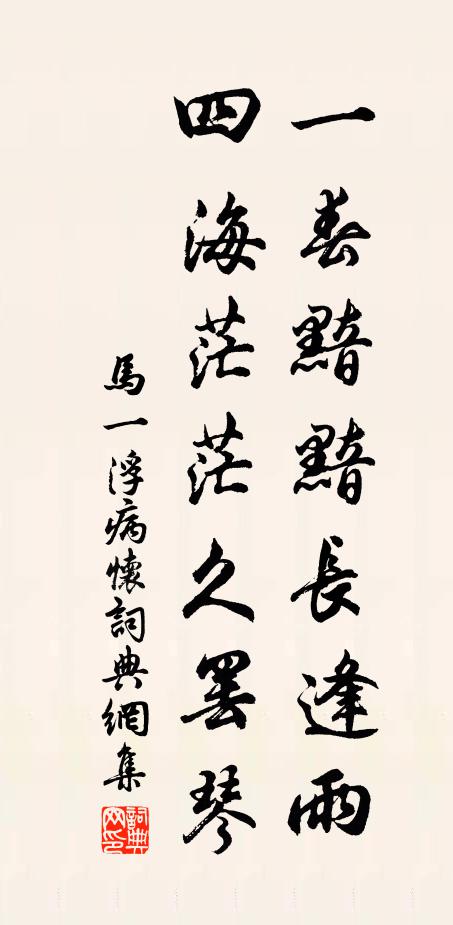 一春黯黯長逢雨
四海茫茫久罢琴
馬一浮病懷詞典網集
詞典网印